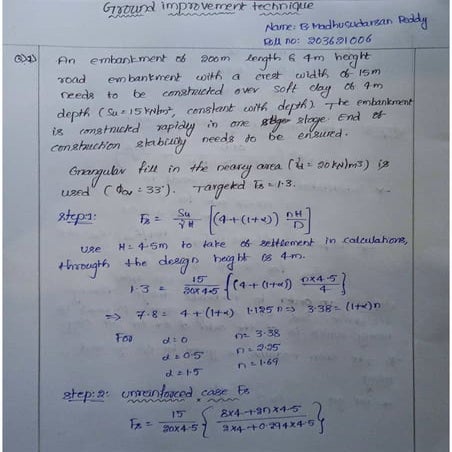 Ground improvement technique
Name: B Madhusudansan Reddy
Roll no: 203621006
An embankment of 200m length & 4m height
road embankment with a crest width of 15m
needs to be constructed over soft clay of 4m
depth (Su = 15 kN/m², constant with depth). The embankment
is constructed rapidly in one stage. End of
construction stability needs to be ensured.
Gnangular fill in the neary area (γd = 20 kN/m3) is
used (Φcv = 33°). Targeted Fs = 1.3.
step:1:
Fs = Su/γH [(4+(1+α)) nH/D]
use H = 4.5m to take of settlement in calculations,
througth the design height is 4m.
1.3 = 15/20x4.5 {(4+(1+α)) nx4.5/4}
⇒ 7.8 = 4+(1+α) 1.125n ⇒ 3.38 = (1+α)n
For α=0 n= 3.38
α=0.5 n= 2.25
α=1.5 n= 1.69
step:2: unreinforced case Fs
Fs = 15/20x4.5 {8x4+2nx4.5/2x4+0.294x4.5}